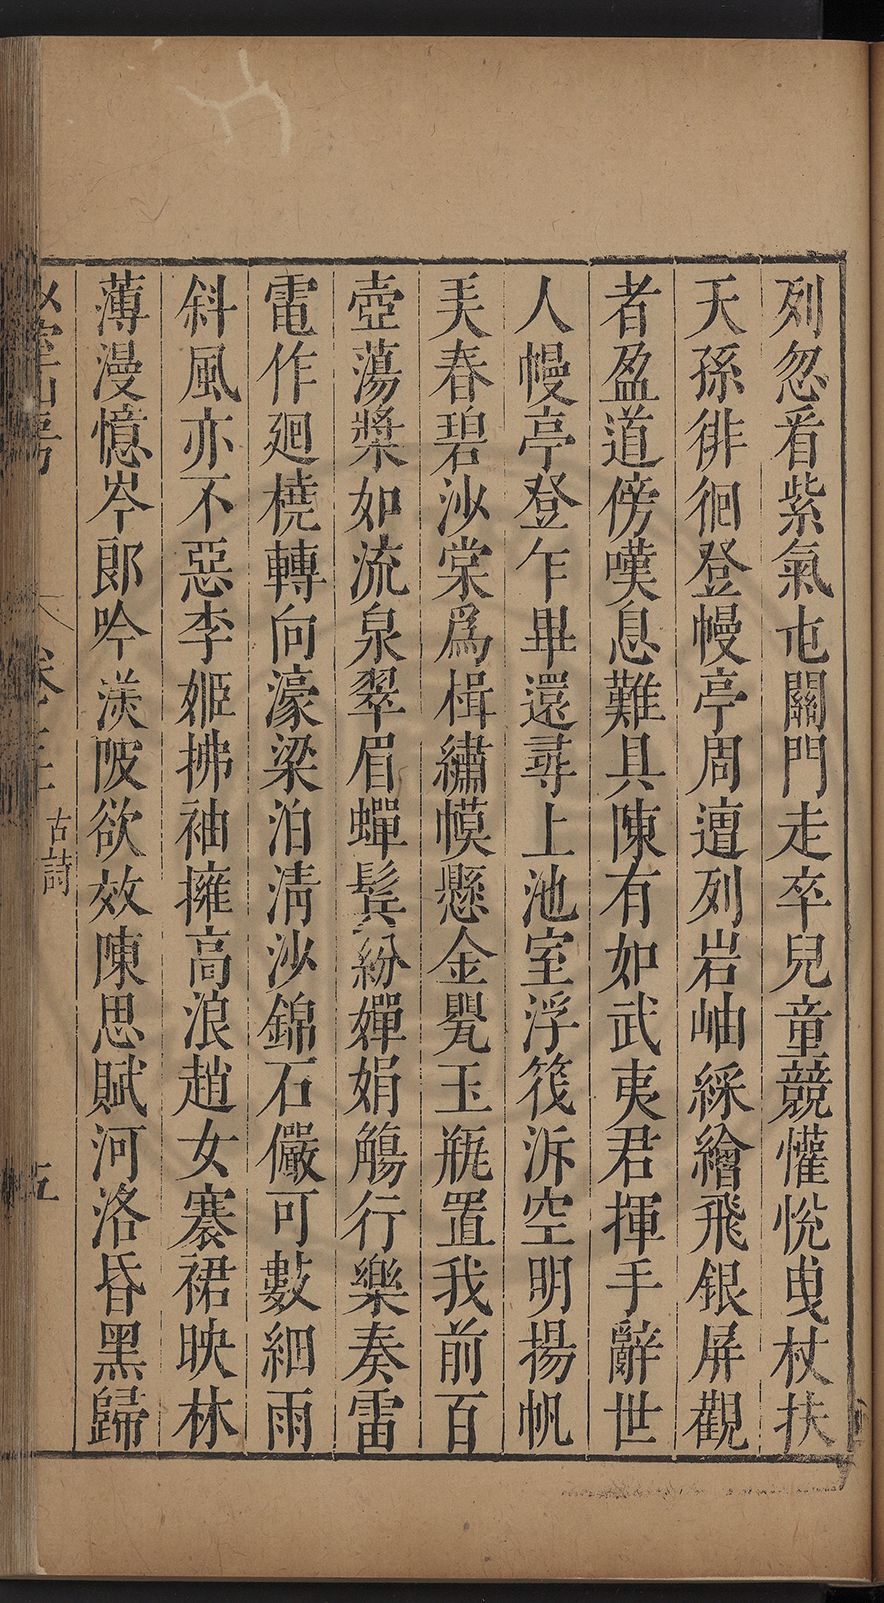 列忽看紫氣屯關門走卒兒童競懽悅曳杖扶
天孫徘徊登幔亭周遭列岩岫綵繪飛銀屏觀
者盈道傍嘆息難具陳有如武夷君揮手辭世
人幔亭登乍畢還尋上池室浮筏泝空明揚帆
美春碧沙棠爲楫繡幙懸金甖玉瓶置我前百
壺蕩槳如流泉翠眉蟬鬂紛嬋娟觴行樂奏雷
電作廻橈轉向濠梁泊清沙錦石儼可數細雨
斜風亦不惡李姬拂袖擁高浪趙女褰裙映林
薄漫憶岑郎吟渼陂欲效陳思賦河洛昏黑歸
山房
卷三
古詩
五